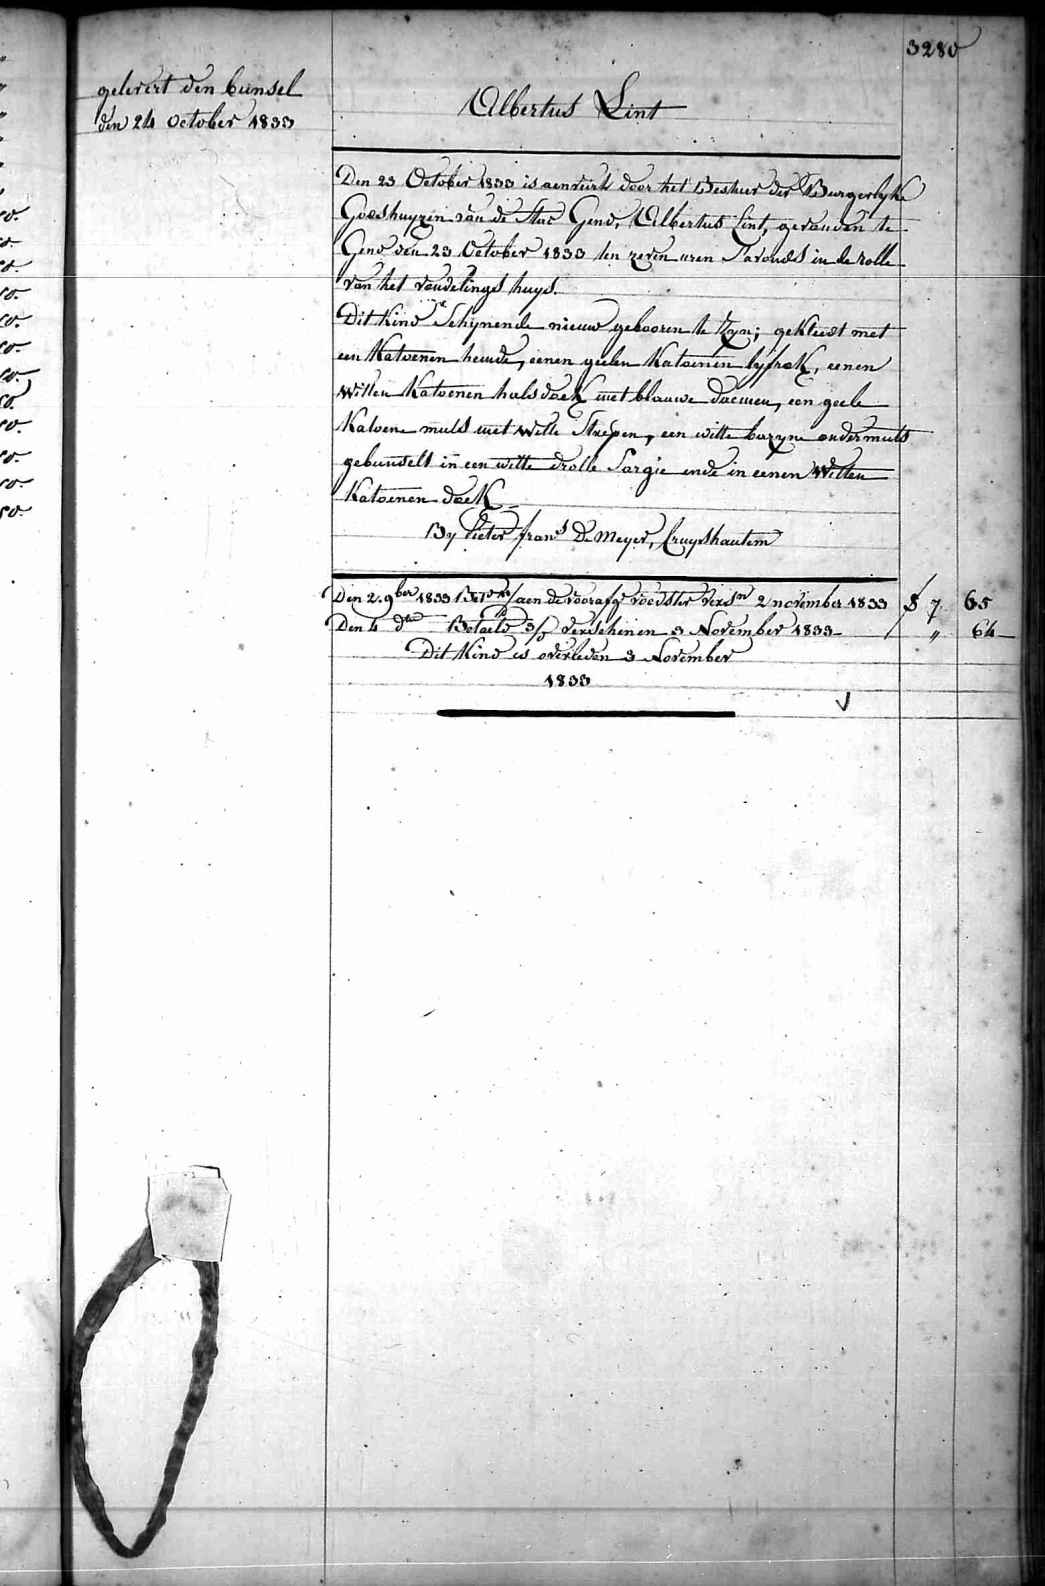 3280
gelevert den bunsel
den 24 october 1833
Albertus Lint
Den 23 October 1833 is aenveirt door het Bestuer der Burgerlyke
Godshuyzen van de Stad Gend, Albertus Lint, gevonden te
Gend den 23 October 1833 ten zeven uren s'avonds in de rolle
van het vondelings huys.
Dit Kind Schynende nieuw gebooren te zyn; gekleedt met
een Katoenen hemde, eenen geelen Katoenen lyfrok, eenen
Witten Katoenen halsdoek met blauwe daemen, een geele
Katoene muts met Witte Strepen, een witte bazyne ondermuts
gebunselt in een witte drolle Sargie ende in eenen Witten
Katoenen doek
By Pieter frans De Meyer, Cruyshautem
Den 2. 9ber 1833 aen de voorafge voedster versn 2 november 1833 7 65
Den 4 do Betaeld 3/ verschenen 3 November 1833 " 64
Dit Kind is overleden 3 November
1833
50.
50
50.
50.
50.
50.
50.
50.
50.
50.
50
50.